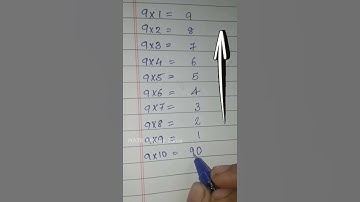 9x1 = 9
9x2 = 8
9x3 = 7
9x4 = 6
9x5 = 5
9x6 = 4
9x7 = 3
9x8 = 2
9x9 = 1
9x10 = 90